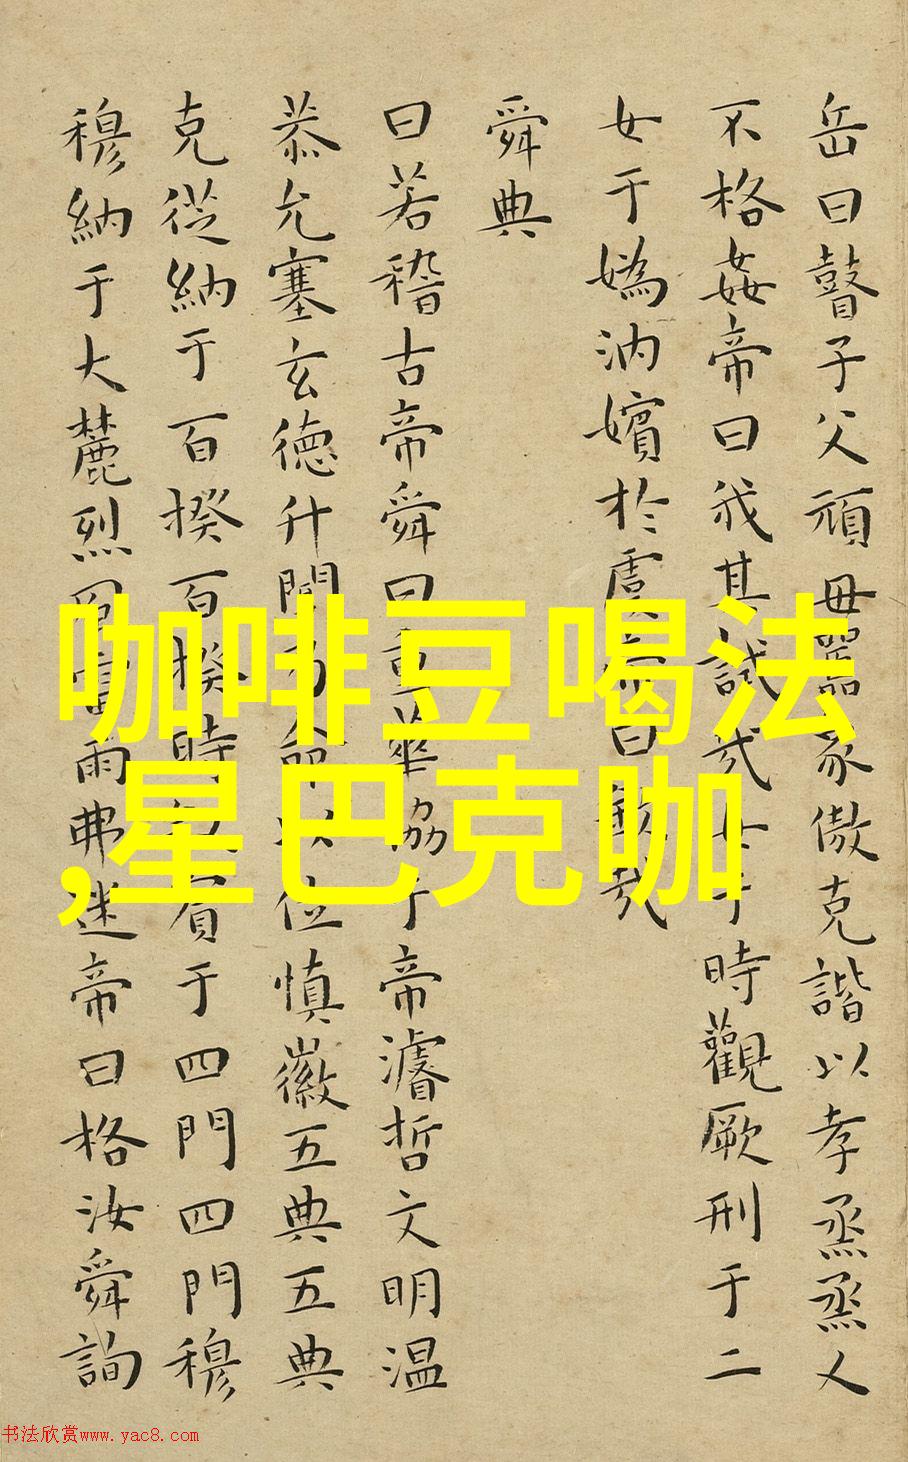 岳曰瞽子父頑毋嚚象傲克諧以孝烝烝乂
不格姦帝曰我其試哉女于時觀厥刑于二
女于媯汭嬪於虞帝曰欽哉
舜典
曰若稽古帝舜曰重華協于帝濬哲文明温
恭允塞玄徳升聞乃命以位慎徽五典五典
克從納于百揆百揆時賓于四門四門穆
穆納于大麓烈風雷雨弗迷帝曰格汝舜詢
咖啡豆喝法
,星巴克咖
书法欣赏www.yac8.com